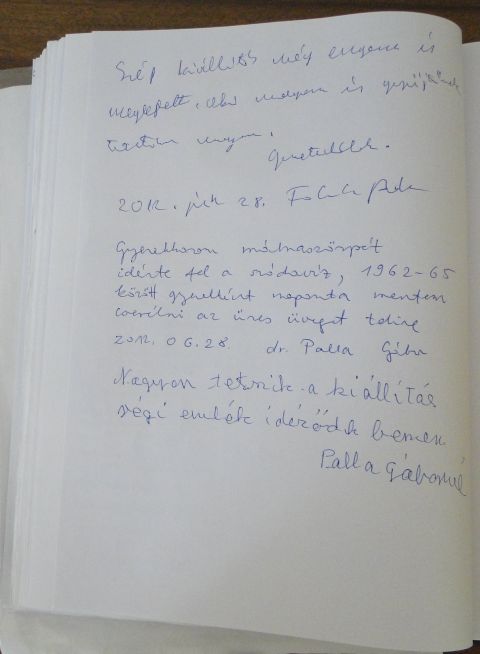 Szép kiállítás még engem is
meglepett, és
tartom
Gratulálok.
2012. jún 28.
Gyerekkorom málnaszörpét
idézte fel a szódavíz, 1962-65
között gyerekként naponta mentem
cserélni az üres üveget telire
2012. 06. 28. dr. Palla Gábor
Nagyon tetszik a kiállítás
régi emlék idéződik bennem
Palla Gáborné